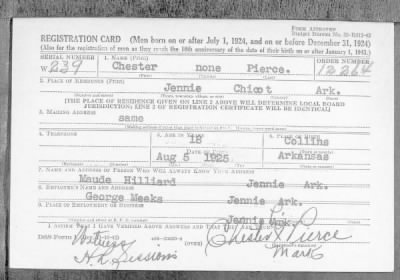 FORM APPROVED
REGISTRATION CARD (Men born on or after July 1, 1924, and on or before December 31, 1924)
(Also for the registration of men as they reach the 18th anniversary of the date of their birth on or after January 1, 1943.)
SERIAL NUMBER 1. NAME (Print) ORDER NUMBER
W 239 Chester none Pierce. 12264
(First) (Middle) (Last)
2. PLACE OF RESIDENCE (Print)
Jennie Chicot Ark.
[THE PLACE OF RESIDENCE GIVEN ON LINE 2 ABOVE WILL DETERMINE LOCAL BOARD
JURISDICTION; LINE 2 OF REGISTRATION CERTIFICATE WILL BE IDENTICAL]
3. MAILING ADDRESS
same
4. TELEPHONE 5. AGE IN YEARS 6. PLACE OF BIRTH
18 Collins
DATE OF BIRTH
Aug 5 1925 Arkansas
7. NAME AND ADDRESS OF PERSON WHO WILL ALWAYS KNOW YOUR ADDRESS
Maude Hilliard Jennie Ark.
8. EMPLOYER'S NAME AND ADDRESS
George Meeks Jennie Ark.
9. PLACE OF EMPLOYMENT OR BUSINESS
Jennie Ark.
I AFFIRM THAT I HAVE VERIFIED ABOVE ANSWERS AND THAT THEY ARE TRUE.
DSS Form 1 (OVER)
Witness Chester Pierce
H. L. Sessions Mark